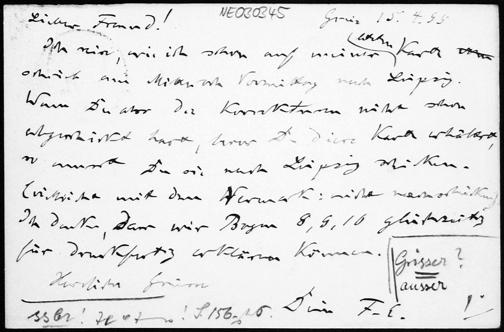 NE030345
Lieber Freund! Graz 15. 4. 55
Ich reise, wie ich schon auf meiner letzten Karte
schrieb am Mittwoch Vormittag nach Leipzig.
Wenn Du aber die Korrekturen nicht schon
abgeschickt hast, bevor Du diese Karte erhältst,
so musst Du sie nach Leipzig schicken.
mit dem Vermerk: nicht nachschicken
Ich denke, dass wir Bogen 8, 9, 10 gleichzeitig
für druckfertig erklären können.
Herzliche Grüsse
Dein F. E.
Grösser?
ausser
S 156